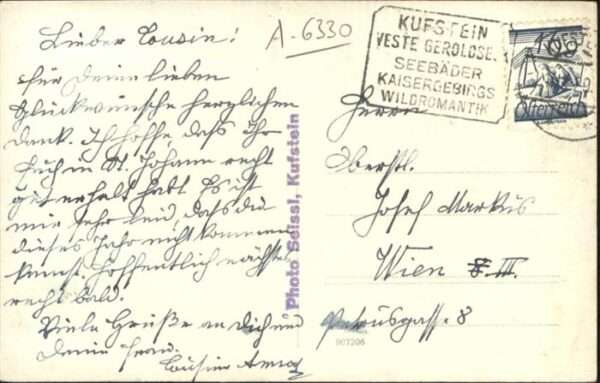 Lieber Cousin!
A-6330
Für Deine lieben
Glückwünsche herzlichen
Dank. Ich hoffe, daß ihr
Euch in St. Johann recht
gut erholt habt. Es ist
mir sehr leid, daß du
dieses Jahr nicht kommen
kannst. Hoffentlich nächstes
recht bald.
Viele Grüße an Dich und
deine Frau.
Cousine
Photo Seissl, Kufstein
KUFSTEIN
VESTE GEROLDSE
SEEBÄDER
KAISERGEBIRGS
WILDROMANTIK
16
Österreich
Herrn
Oberstl.
Josef Markus
Wien III.
Petrusgasse 8